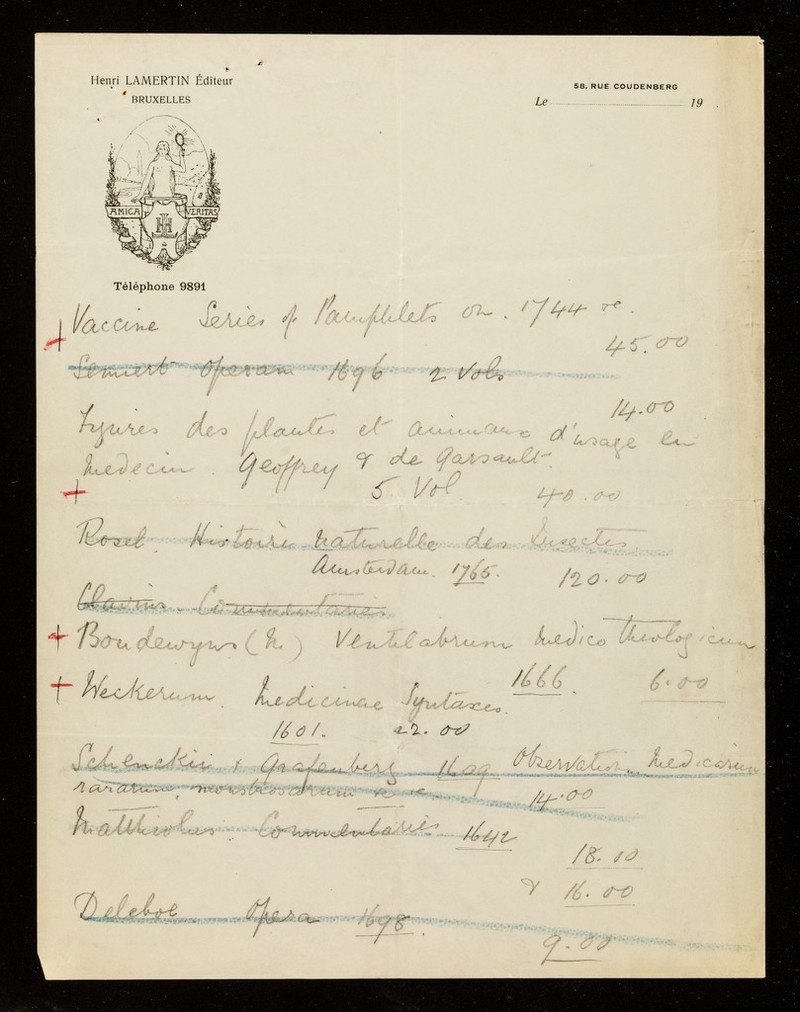 Henri LAMERTIN Éditeur
BRUXELLES
58. RUE COUDENBERG
Le 19 .
AMICA VERITAS
HL
Téléphone 9891
+ Vaccine Series of Pamphlets on . 1744 &c .
45.00
Sennert Operam 1696 2 Vols
14.00
Figures des plantes et animaux d'usage en
medecin . Geoffrey & de Garsault.
+ 5 Vol. 40.00
Rosel Histoire naturelle des Insectes
Amsterdam. 1765. 120.00
Clavius . Commentaries
+ Boudewyns (M.) Ventilabrum medico theologicum
1666. 6.00
+ Weckerum. Medicinae Syntaxes.
1601. 22.00
Schenckii & Grafenberg 1609 Observation. Medicarum
rararum, monstrosarum &c &c. 14.00
Matthiolus . Commentaries 1642
18.10
& 16.00
Deleboe . Opera 1698.
9.00